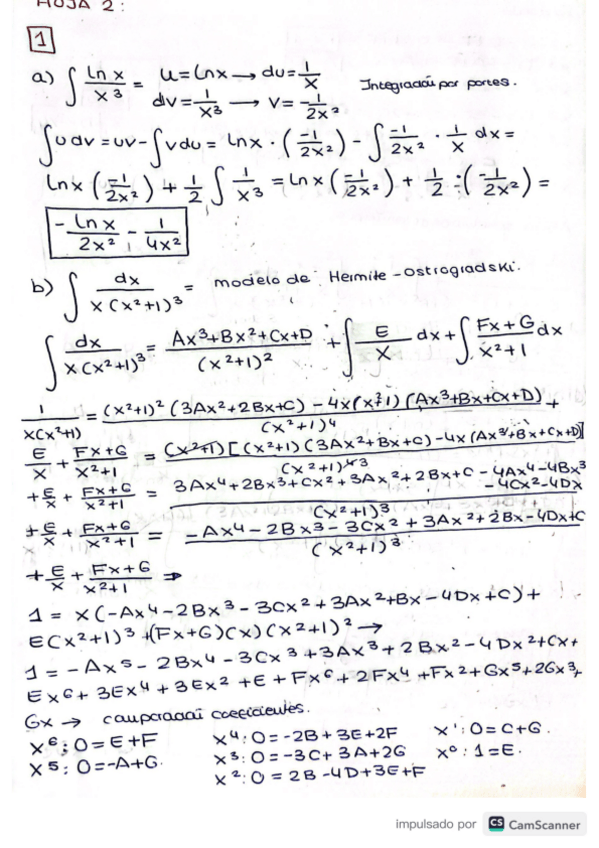 HOJA 2:
1
a) ∫ ln x / x³ = u = ln x → du = 1/x
dv = 1/x³ → v = -1/2x² Integración por partes.
∫ u dv = uv - ∫ v du = ln x · (-1/2x²) - ∫ -1/2x² · 1/x dx =
ln x (-1/2x²) + 1/2 ∫ 1/x³ = ln x (-1/2x²) + 1/2 · (-1/2x²) =
- ln x / 2x² - 1/4x²
b) ∫ dx / x(x²+1)³ = modelo de Hermite-Ostrogradski.
∫ dx / x(x²+1)³ = Ax³+Bx²+Cx+D / (x²+1)² + ∫ E/x dx + ∫ Fx+G / x²+1 dx
1 / x(x²+1) = (x²+1)² (3Ax²+2Bx+C) - 4x(x²+1)(Ax³+Bx+Cx+D) / (x²+1)⁴ +
E/x + Fx+G / x²+1 = (x²+1)[(x²+1)(3Ax²+Bx+C) - 4x(Ax³+Bx+Cx+D)] / (x²+1)⁴³
+ E/x + Fx+G / x²+1 = 3Ax⁴+2Bx³+Cx²+3Ax²+2Bx+C - 4Ax⁴-4Bx³ -4Cx²-4Dx / (x²+1)³
+ E/x + Fx+G / x²+1 = -Ax⁴-2Bx³-3Cx²+3Ax²+2Bx-4Dx+C / (x²+1)³
+ E/x + Fx+G / x²+1 ⇒
1 = x(-Ax⁴-2Bx³-3Cx²+3Ax²+Bx-4Dx+C)+
E(x²+1)³+(Fx+G)(x)(x²+1)² →
1 = -Ax⁵-2Bx⁴-3Cx³+3Ax³+2Bx²-4Dx²+Cx+
Ex⁶+3Ex⁴+3Ex²+E+Fx⁶+2Fx⁴+Fx²+Gx⁵+2Gx³+
Gx → comparación coeficientes.
x⁶: 0=E+F x⁴: 0=-2B+3E+2F x¹: 0=C+G.
x⁵: 0=-A+G. x³: 0=-3C+3A+2G x⁰: 1=E.
x²: 0=2B-4D+3E+F
impulsado por CS CamScanner